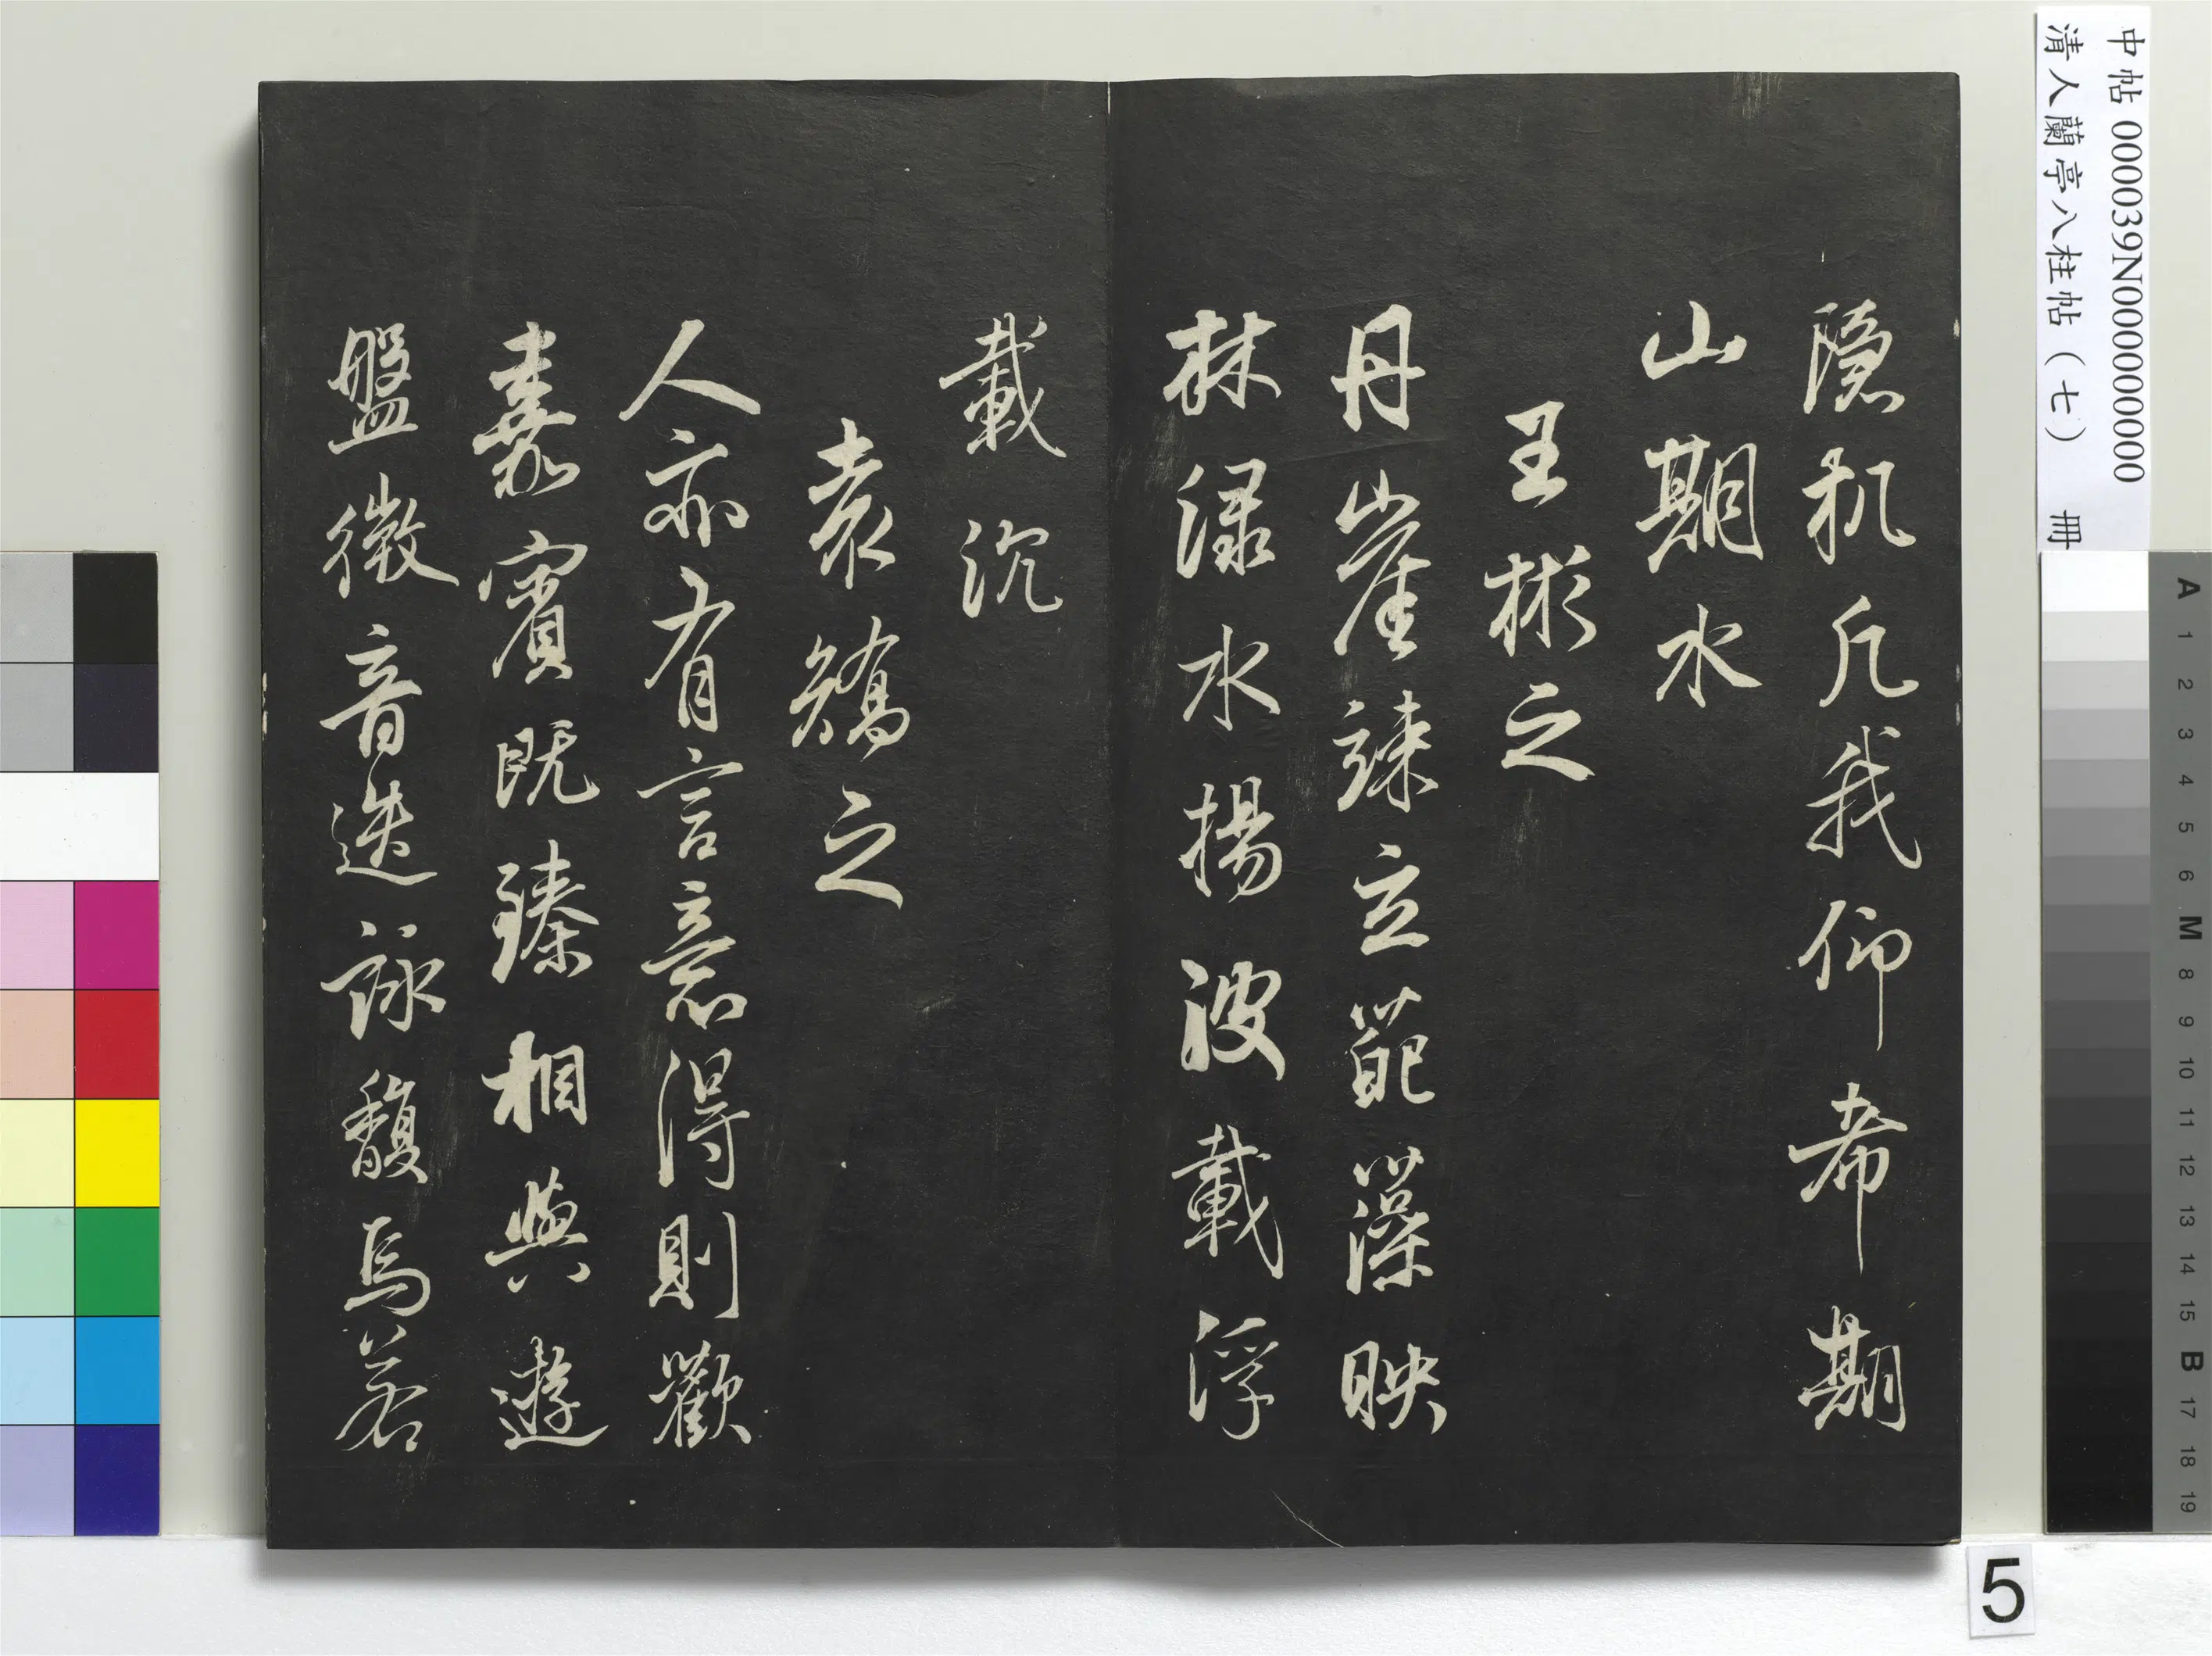 中帖 000039N000000000
清人蘭亭八柱帖（七） 冊
隱机凡我仰希期
山期水
王彬之
丹崖竦立葩藻映
林渌水揚波載浮
載沉
袁矯之
人亦有言意得則歡
嘉賓既臻相與遊
盤微音迭詠馥焉若
A 1 2 3 4 5 6 M 8 9 10 11 12 13 14 15 B 17 18 19
5